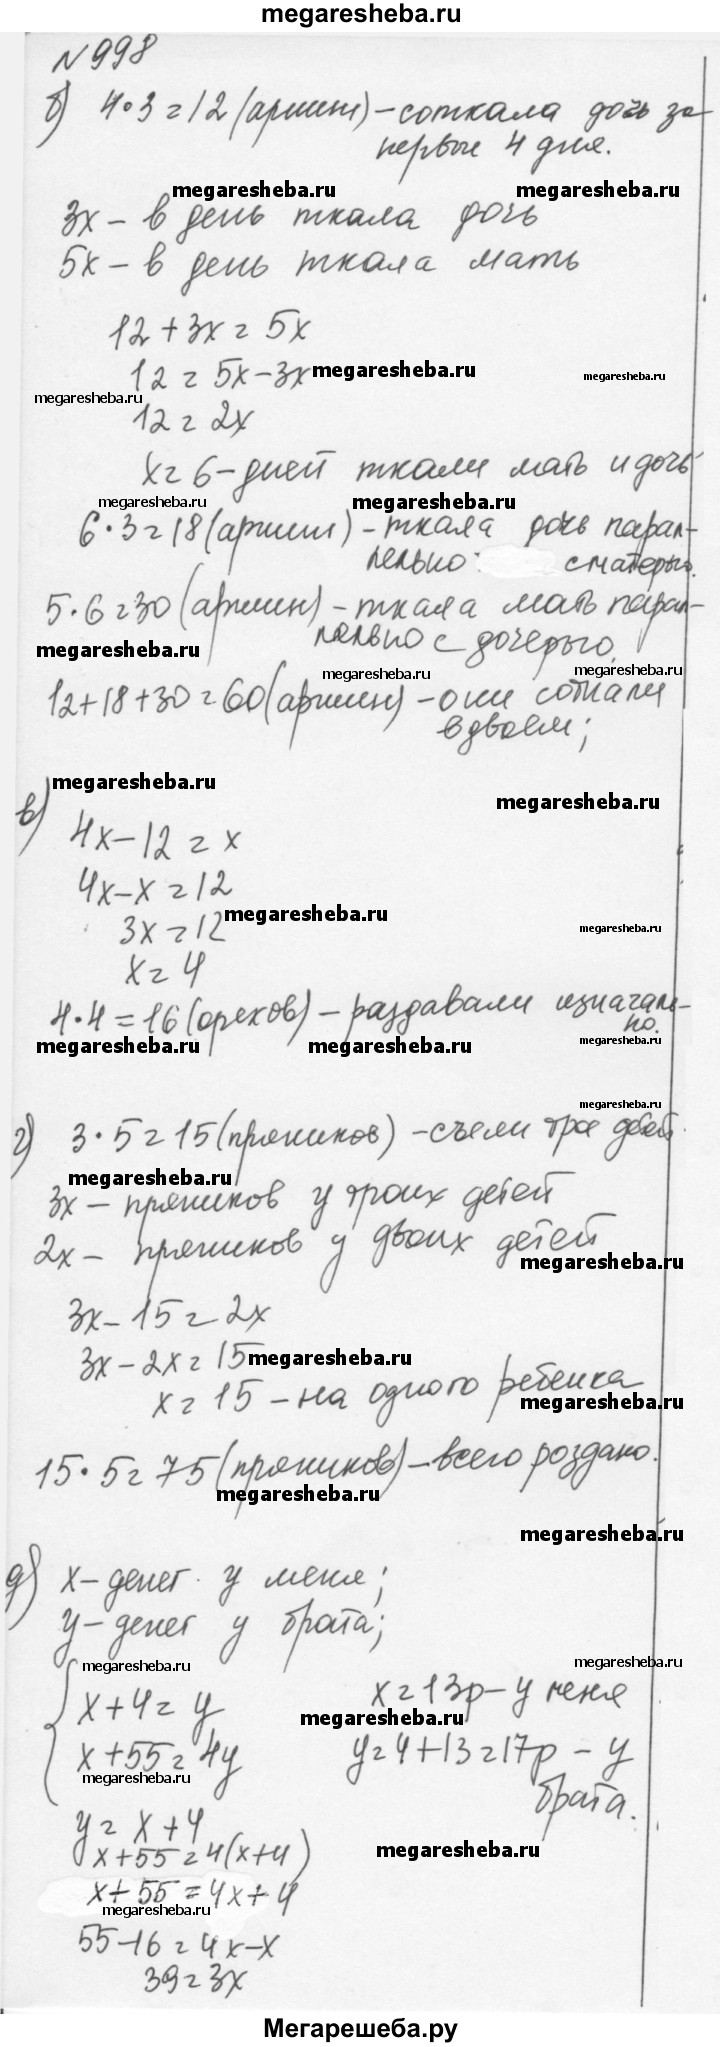 megaresheba.ru
№998
б) 4·3=12 (аршин) – соткала дочь за
первые 4 дня.
megaresheba.ru megaresheba.ru
3x – в день ткала дочь
5x – в день ткала мать
12+3x=5x
12=5x–3x megaresheba.ru megaresheba.ru
megaresheba.ru
12=2x
x=6 – дней ткали мать и дочь
megaresheba.ru megaresheba.ru
6·3=18 (аршин) – ткала дочь парал-
лельно с матерью.
5·6=30 (аршин) – ткала мать парал-
лельно с дочерью.
megaresheba.ru
megaresheba.ru megaresheba.ru
12+18+30=60 (аршин) – они соткали
вдвоем;
megaresheba.ru megaresheba.ru
в)
4x–12=x
4x–x=12
megaresheba.ru megaresheba.ru
3x=12
x=4
4·4=16 (орехов) – раздавали изначаль-
но.
megaresheba.ru megaresheba.ru megaresheba.ru
megaresheba.ru
г) 3·5=15 (пряников) – съели трое детей.
megaresheba.ru
3x – пряников у троих детей
2x – пряников у двоих детей
megaresheba.ru
3x–15=2x
3x–2x=15 megaresheba.ru
x=15 – на одного ребенка
megaresheba.ru
15·5=75 (пряников) – всего роздано.
megaresheba.ru
megaresheba.ru
д) x – денег у меня;
y – денег у брата;
megaresheba.ru megaresheba.ru
x+4=y x=13р – у меня
megaresheba.ru
x+55=4y y=4+13=17р – у
брата.
megaresheba.ru
y=x+4
x+55=4(x+4)
megaresheba.ru
x+55=4x+4
megaresheba.ru
55–16=4x–x
39=3x
Мегарешеба.ру